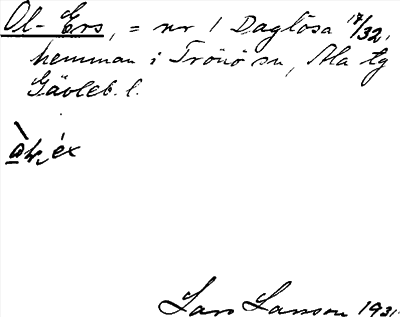 Ol-Ers, = nr 1 Daglösa 17/32,
hemman i Trönö sn, Ala tg
Gävleb. l.
Lars Larsson 1931.